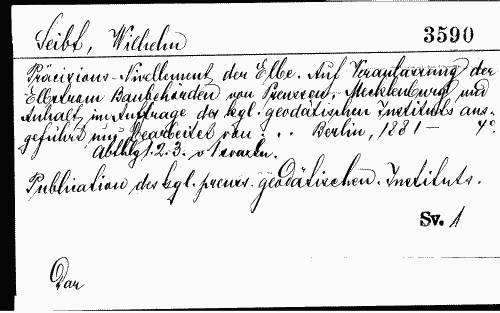 Seibt, Wilhelm 3590
Präcisions-Nivellement der Elbe. Auf Veranlassung der
Elbstrom Baubehörden von Preussen, Mecklenburg und
Anhalt im Auftrage des kgl. geodätischen Instituts aus-
geführt und bearbeitet von . . . Berlin, 1881 — 4°.
Abthlg 1. 2. 3.
Publication des kgl. preuss. geodätischen Instituts.
Sv. 1
Dar